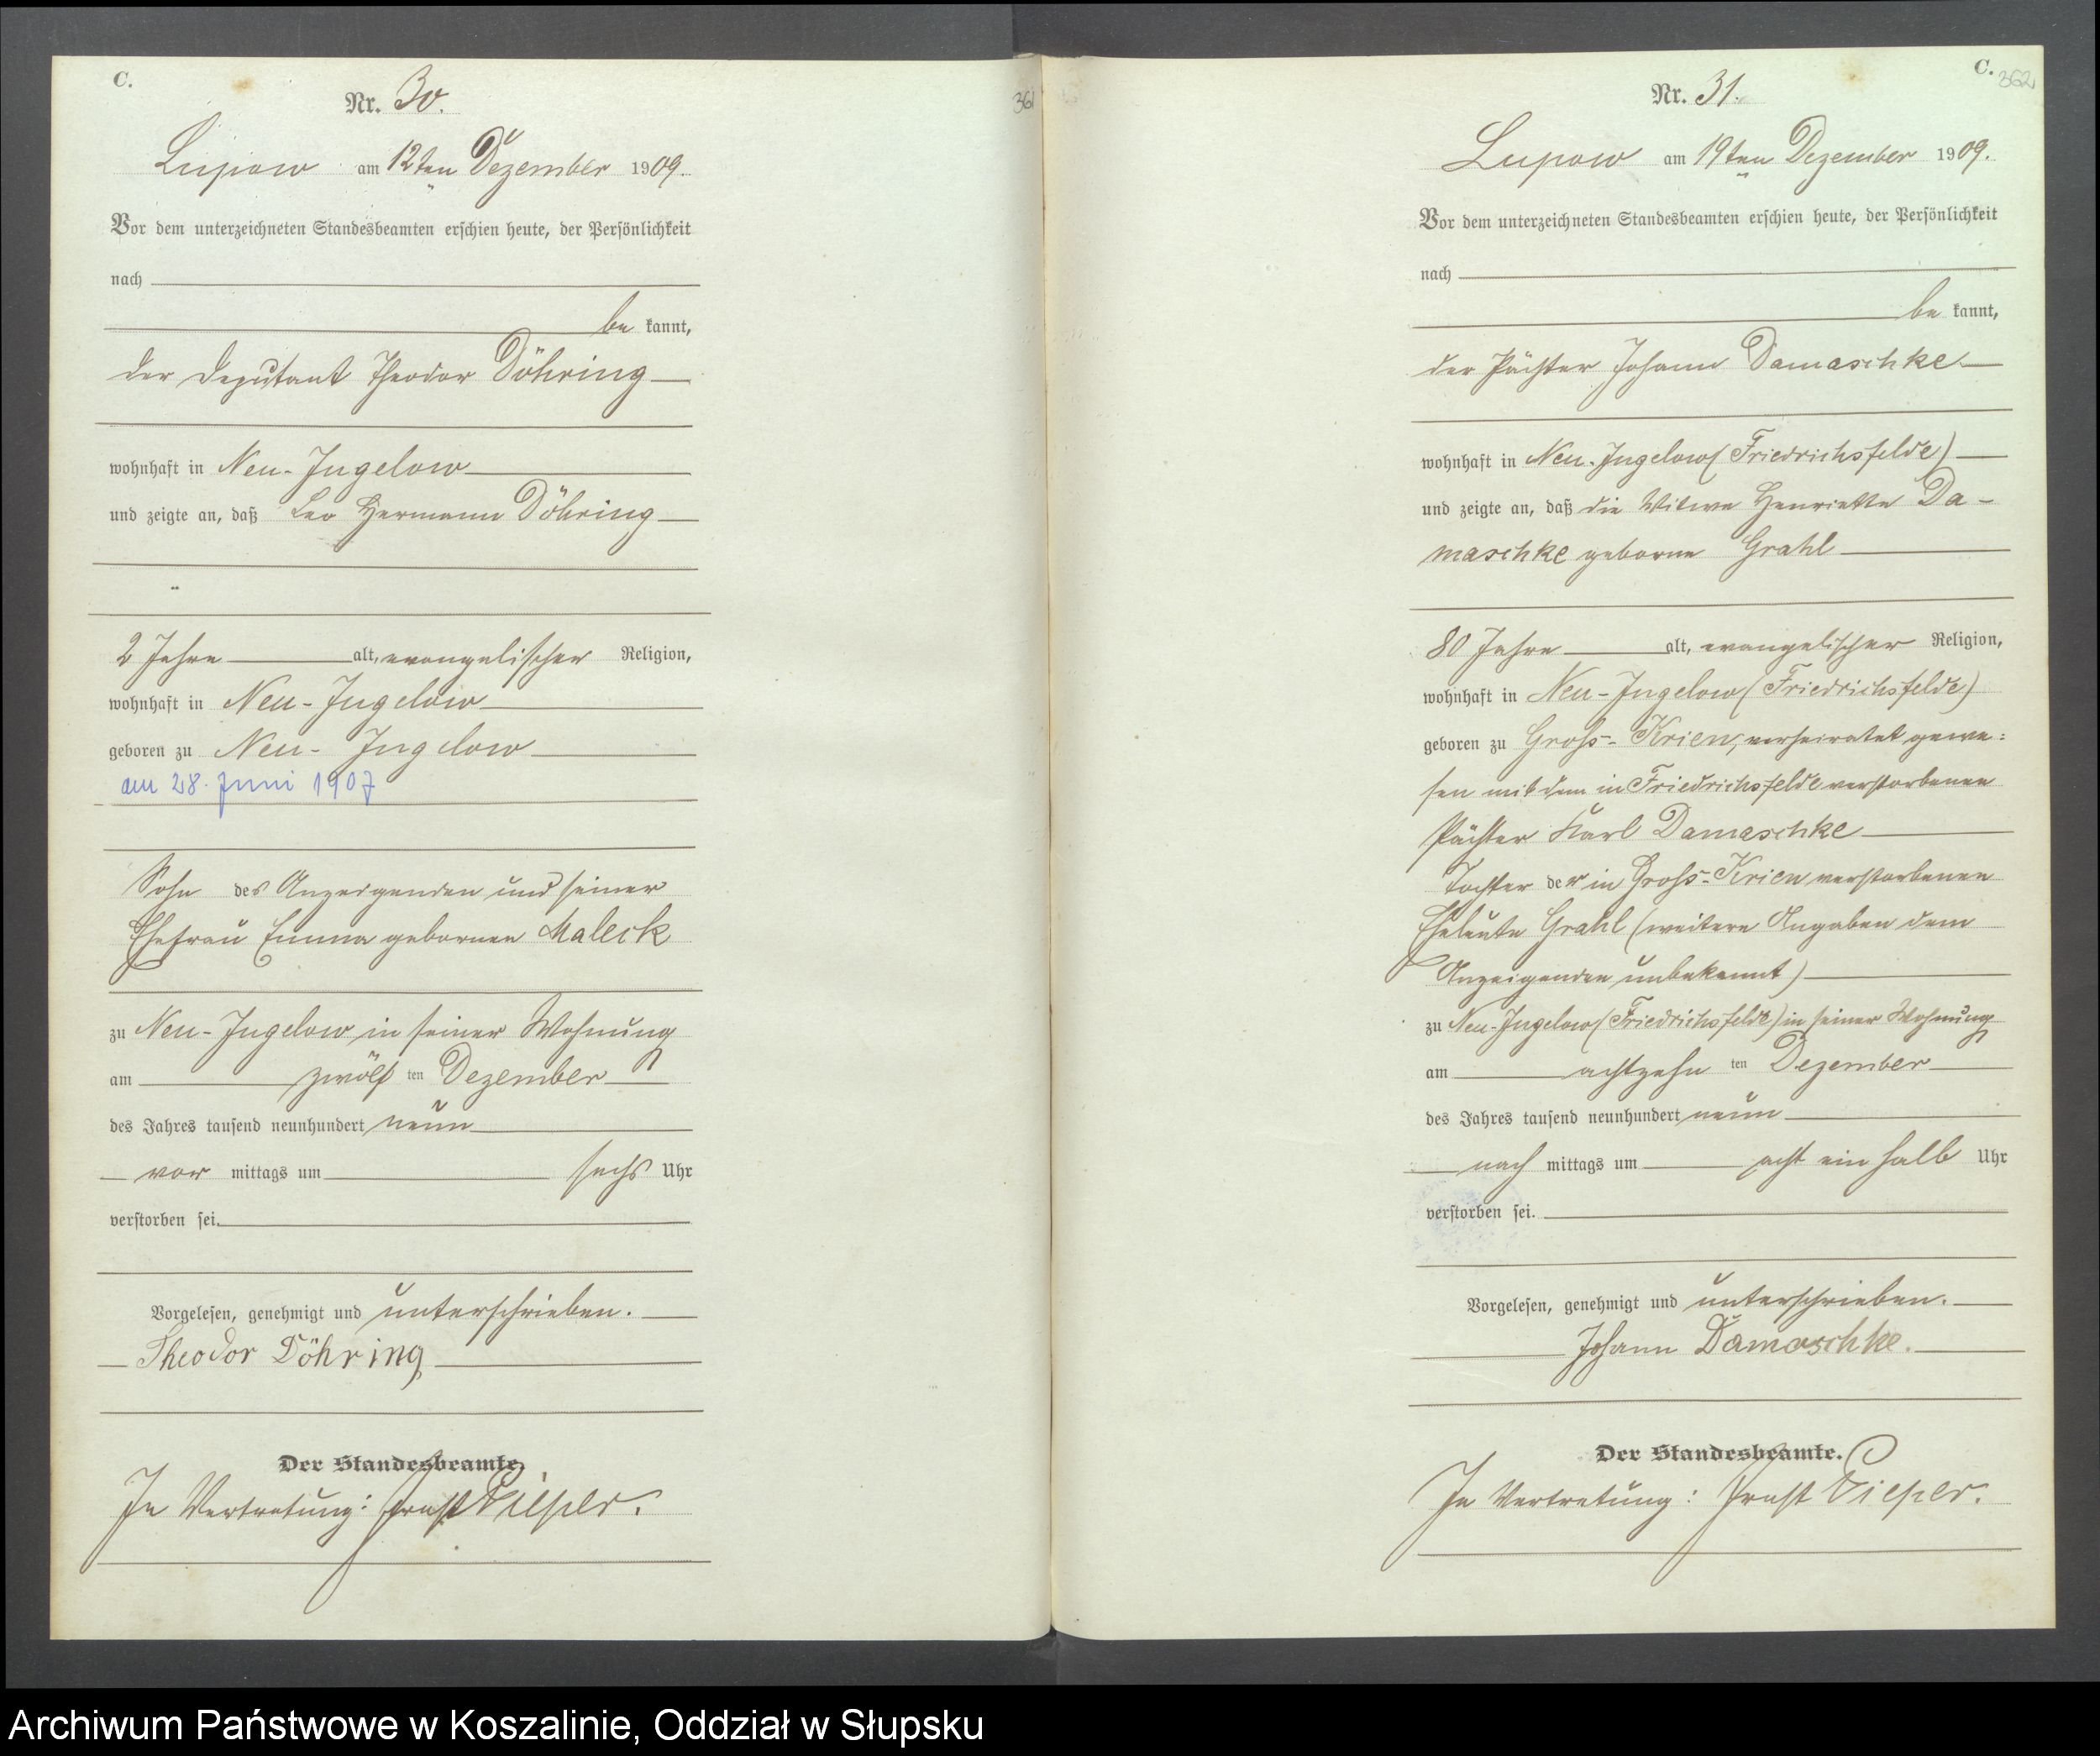 C.
361
Nr. 30.
Lupow am 12ten Dezember 1909.
Vor dem unterzeichneten Standesbeamten erschien heute, der Persönlichkeit
nach
be kannt,
der Deputant Theodor Döhring
wohnhaft in Neu-Jugelow
und zeigte an, daß Leo Hermann Döhring
2 Jahre alt, evangelischer Religion,
wohnhaft in Neu-Jugelow
geboren zu Neu-Jugelow
am 28. Juni 1907
Sohn des Anzeigenden und seiner
Ehefrau Emma gebornen Maleck
zu Neu-Jugelow in seiner Wohnung
am zwölf ten Dezember
des Jahres tausend neunhundert neun
vor mittags um sechs Uhr
verstorben sei.
Vorgelesen, genehmigt und unterschrieben.
Theodor Döhring
Der Standesbeamte.
In Vertretung: Ernst Pieper.
C.
362
Nr. 31.
Lupow am 19ten Dezember 1909.
Vor dem unterzeichneten Standesbeamten erschien heute, der Persönlichkeit
nach
be kannt,
der Pächter Johann Damaschke
wohnhaft in Neu-Jugelow (Friedrichsfelde)
und zeigte an, daß die Witwe Henriette Da-
maschke geborne Grahl
80 Jahre alt, evangelischer Religion,
wohnhaft in Neu-Jugelow (Friedrichsfelde)
geboren zu Gross-Krien, verheiratet gewe=
sen mit dem in Friedrichsfelde verstorbenen
Pächter Karl Damaschke
Tochter der in Gross-Krien verstorbenen
Eheleute Grahl (weitere Angaben dem
Anzeigenden unbekannt)
zu Neu-Jugelow (Friedrichsfelde) in seiner Wohnung
am achtzehn ten Dezember
des Jahres tausend neunhundert neun
nach mittags um acht ein halb Uhr
verstorben sei.
Vorgelesen, genehmigt und unterschrieben.
Johann Damaschke.
Der Standesbeamte.
In Vertretung: Ernst Pieper.
Archiwum Państwowe w Koszalinie, Oddział w Słupsku